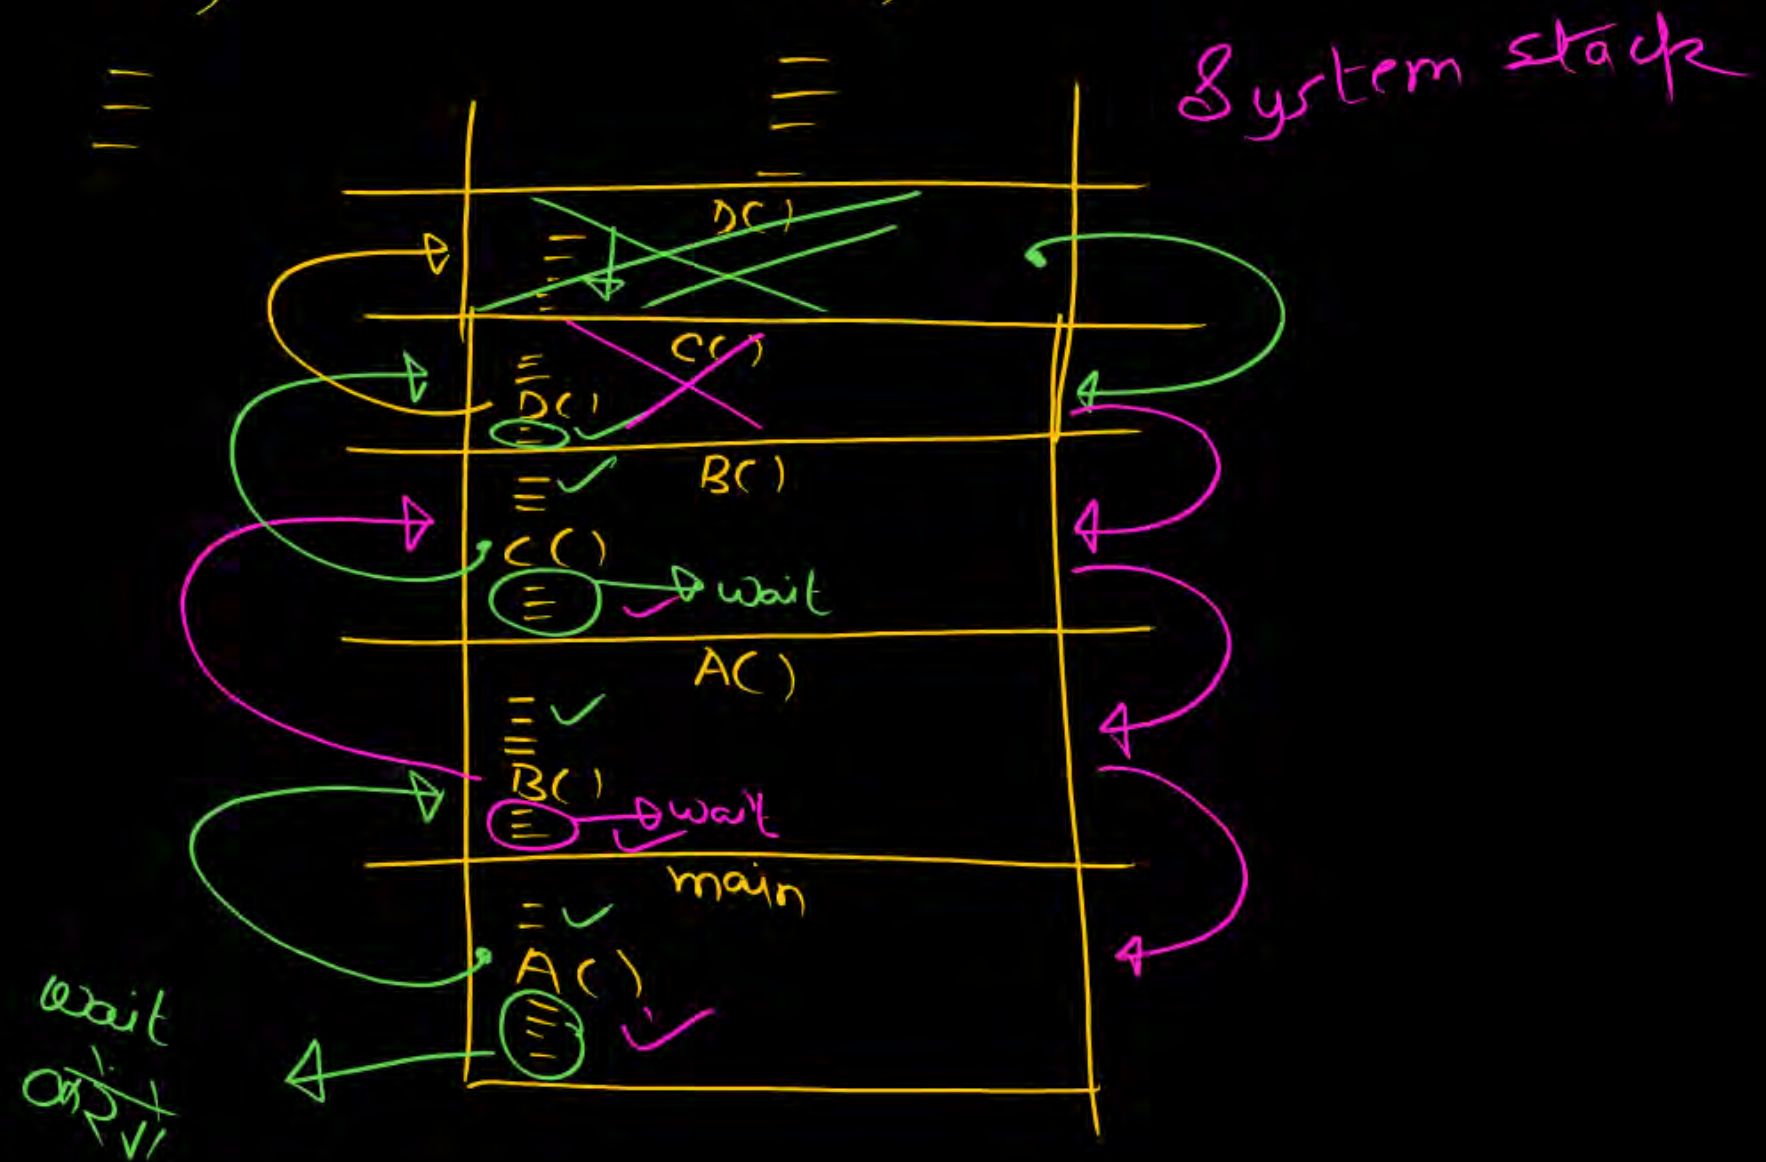 System stack
D()
C()
D()
B()
C()
wait
A()
B()
wait
main
A()
wait